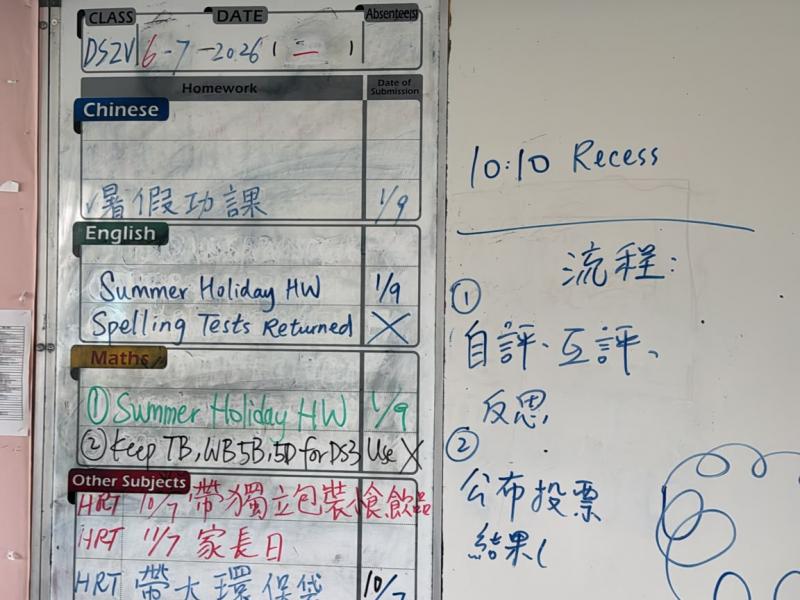 CLASS DATE Absentee(s)
DS2V 6-7-2026 (一)
Homework Date of Submission
Chinese
✓暑假功課 1/9
English
Summer Holiday HW 1/9
Spelling Tests Returned X
Maths
① Summer Holiday HW 1/9
② Keep TB, WB 5B, 5D for DS3 Use X
Other Subjects
HRT 10/7 帶獨立包裝食飲品
HRT 11/7 家長日
HRT 帶大環保袋 10/7
10:10 Recess
流程:
①
自評、互評、
反思
②
公布投票
結果(